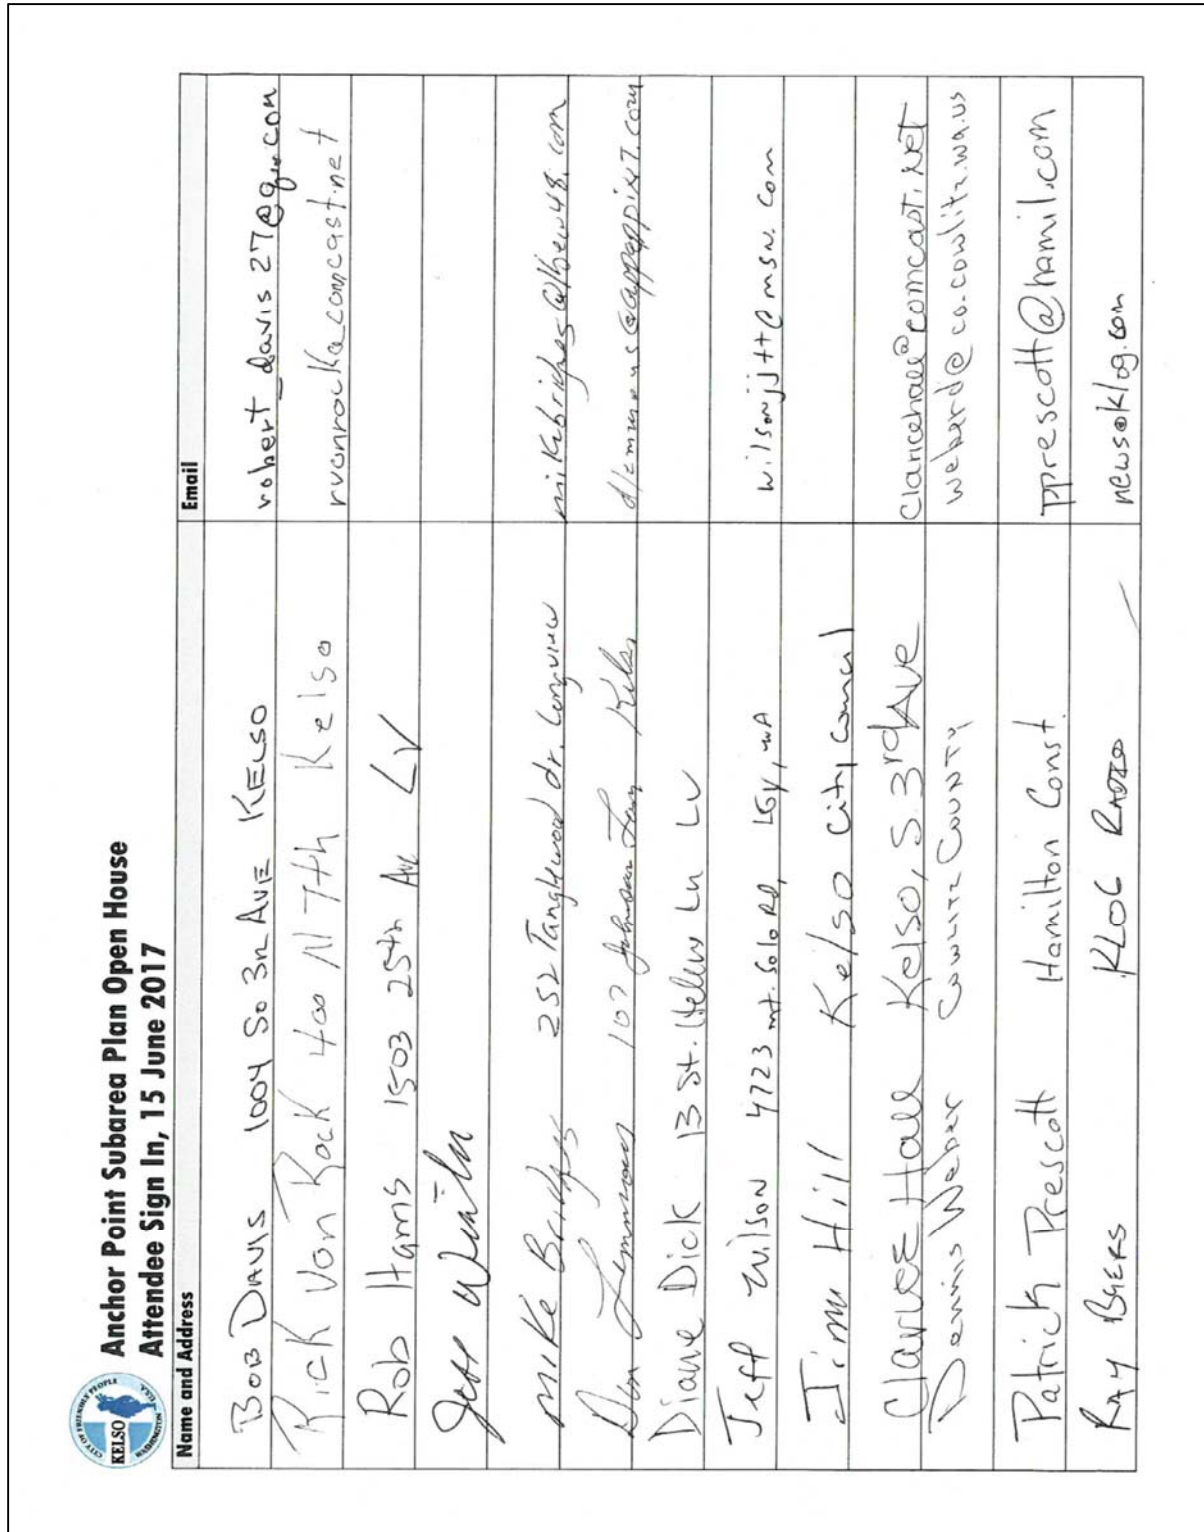 CITY OF FRIENDLY PEOPLE
KELSO
WASHINGTON USA
Anchor Point Subarea Plan Open House
Attendee Sign In, 15 June 2017
Name and Address Email
BOB DAVIS 1004 So 3RD AVE KELSO robert_davis27@q.com
Rick Von Rock 400 N 7th Kelso rvonrock@comcast.net
Rob Harris 1503 25th Ave LV
Jeff
Mike Bridges 252 Tanglewood dr. Longview mikebridges@ibew48.com
Don Lemmons 107 Kelso
Diane Dick 13 St. Helens Ln LV
Jeff Wilson 4723 mt. Solo RD, LGV, WA wilsonjjtt@msn.com
Jim Hill Kelso City Council
Clarice Hall Kelso, S. 3rd AVE claricehall@comcast.net
Dennis Weber COWLITZ COUNTY weberd@co.cowlitz.wa.us
Patrick Prescott Hamilton Const. pprescott@hamil.com
RAY BYERS KLOG RADIO news@klog.com